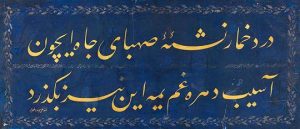 درد خمار نشئهٔ صهبای جاه ایچون
آسیب دهره غم یمه این نیز بگذرد